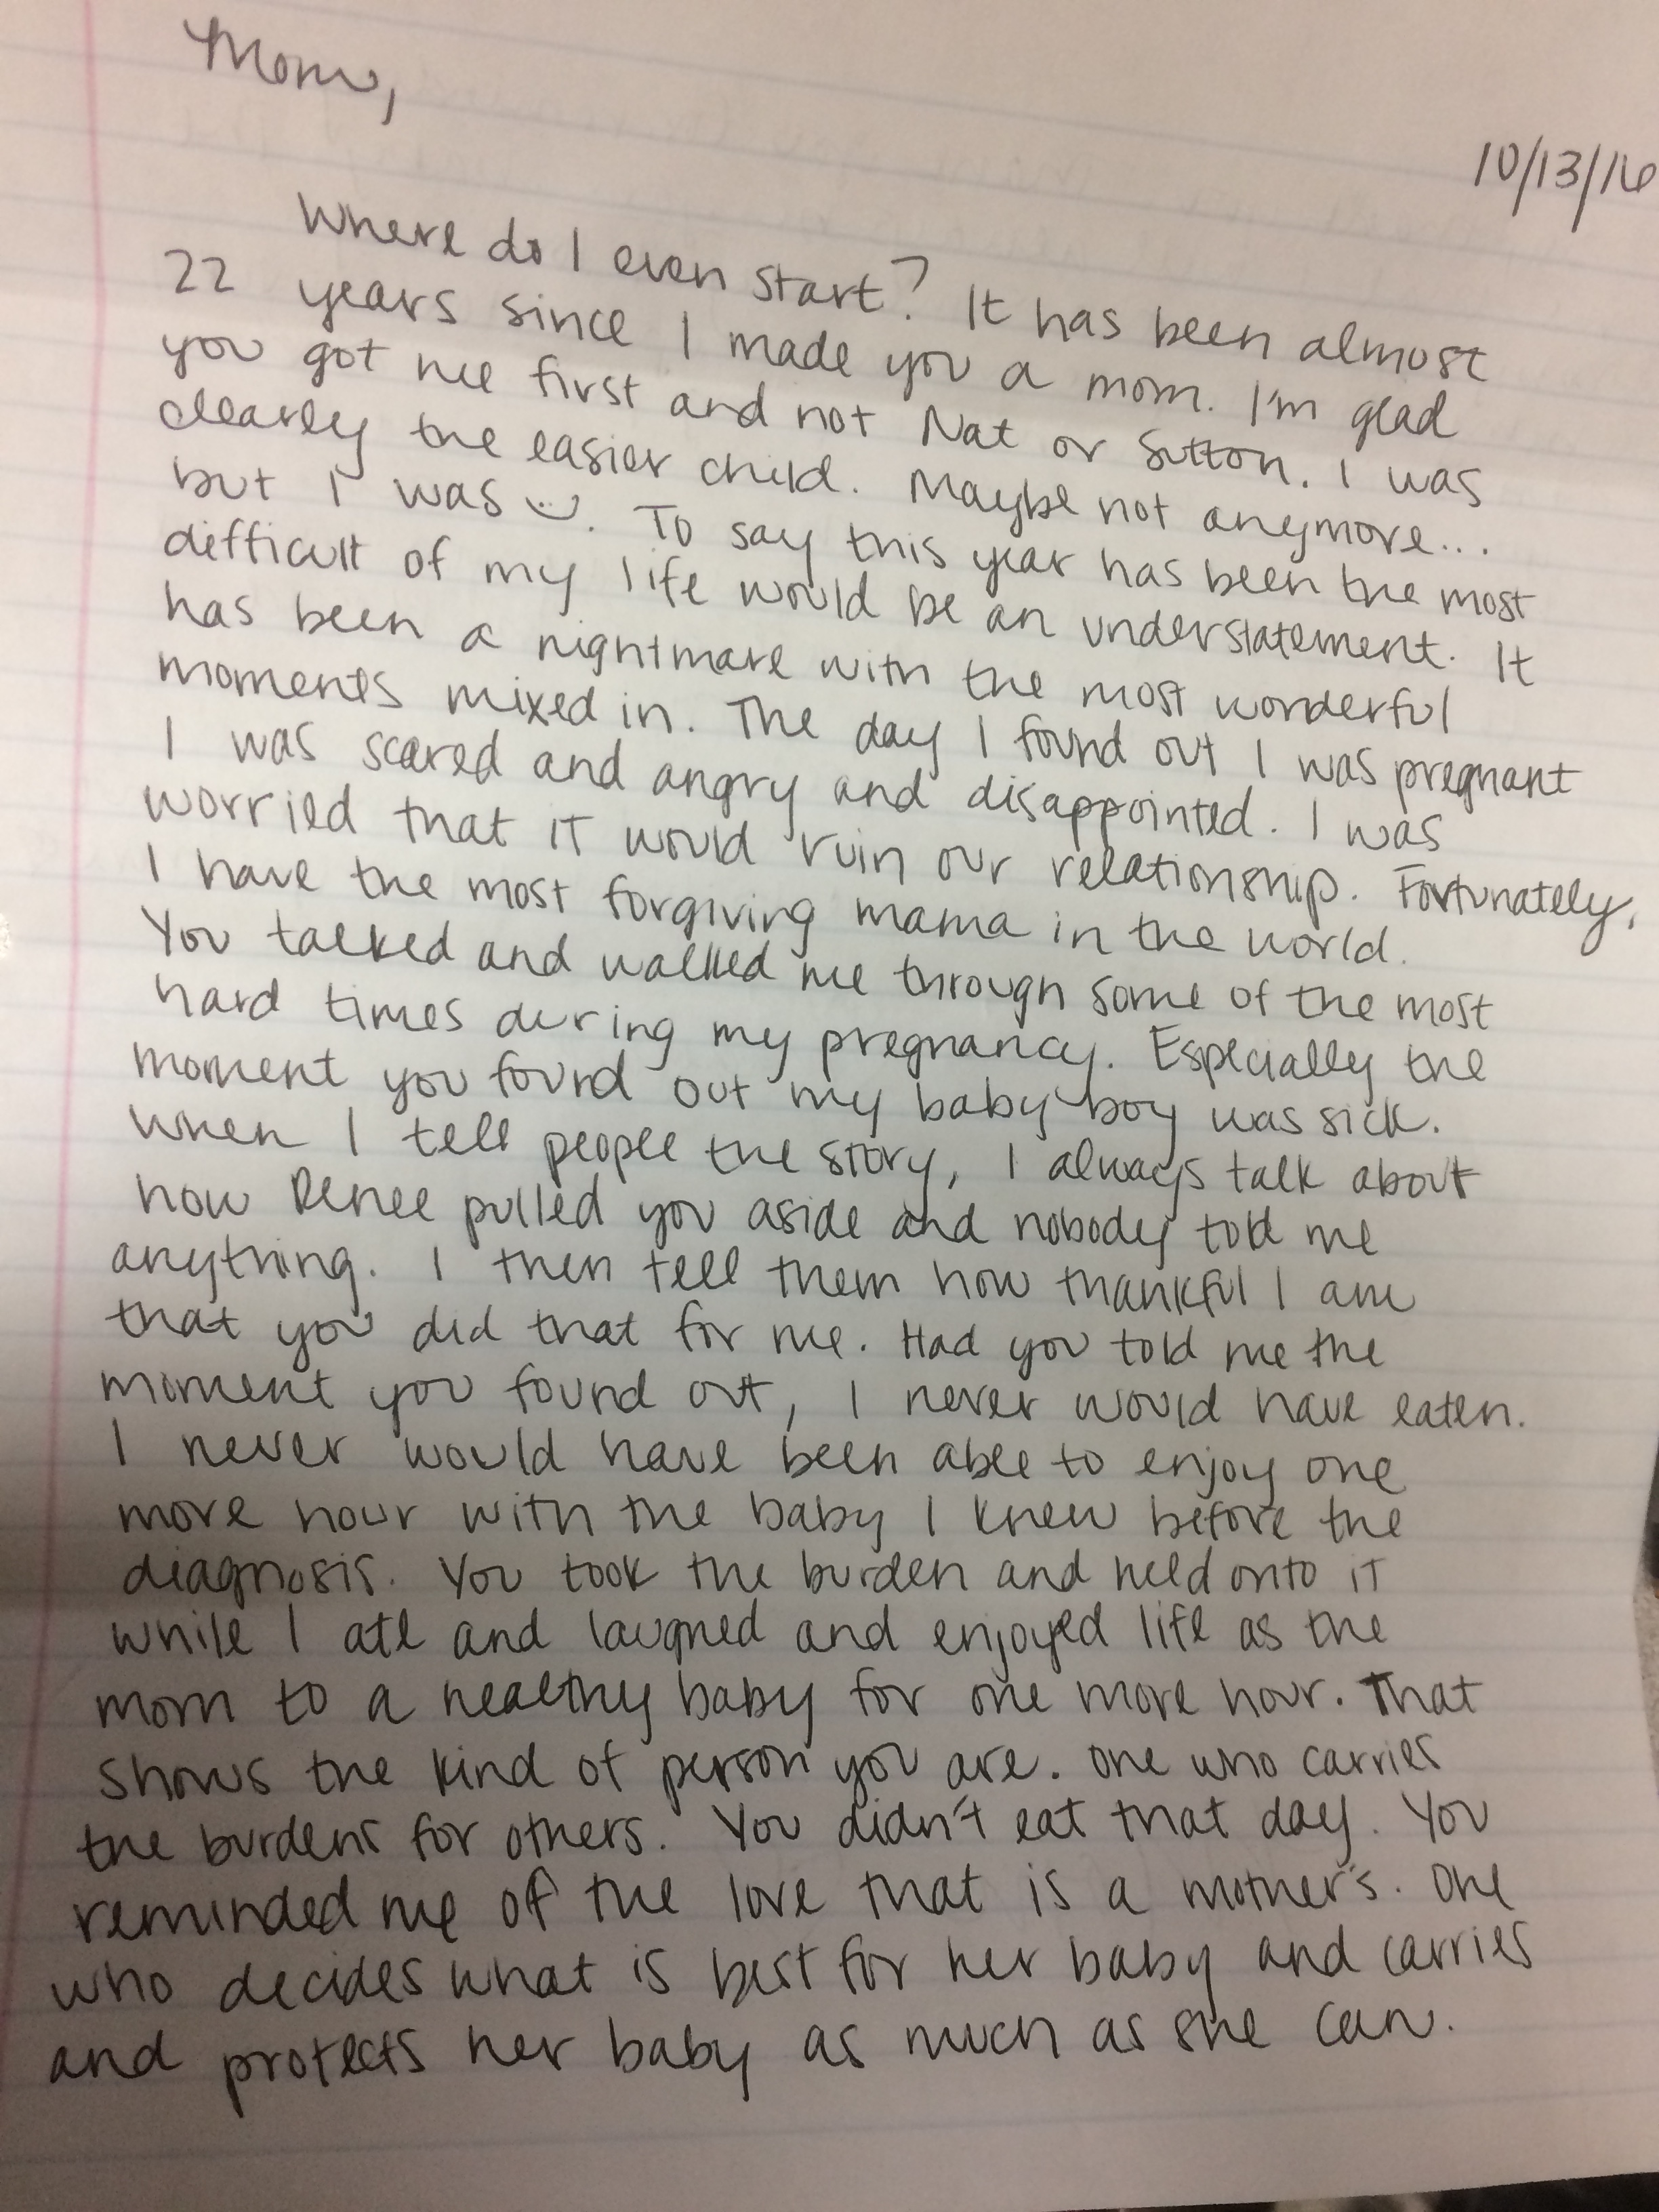 Mom,
10/13/16
Where do I even start? It has been almost
22 years since I made you a mom. I'm glad
you got me first and not Nat or Sutton. I was
clearly the easier child. Maybe not anymore...
but I was :). To say this year has been the most
difficult of my life would be an understatement. It
has been a nightmare with the most wonderful
moments mixed in. The day I found out I was pregnant
I was scared and angry and disappointed. I was
worried that it would ruin our relationship. Fortunately,
I have the most forgiving mama in the world.
You talked and walked me through some of the most
hard times during my pregnancy. Especially the
moment you found out my baby boy was sick.
When I tell people the story, I always talk about
how Renee pulled you aside and nobody told me
anything. I then tell them how thankful I am
that you did that for me. Had you told me the
moment you found out, I never would have eaten.
I never would have been able to enjoy one
more hour with the baby I knew before the
diagnosis. You took the burden and held onto it
while I ate and laughed and enjoyed life as the
mom to a healthy baby for one more hour. That
shows the kind of person you are. One who carries
the burdens for others. You didn't eat that day. You
reminded me of the love that is a mother's. One
who decides what is best for her baby and carries
and protects her baby as much as she can.